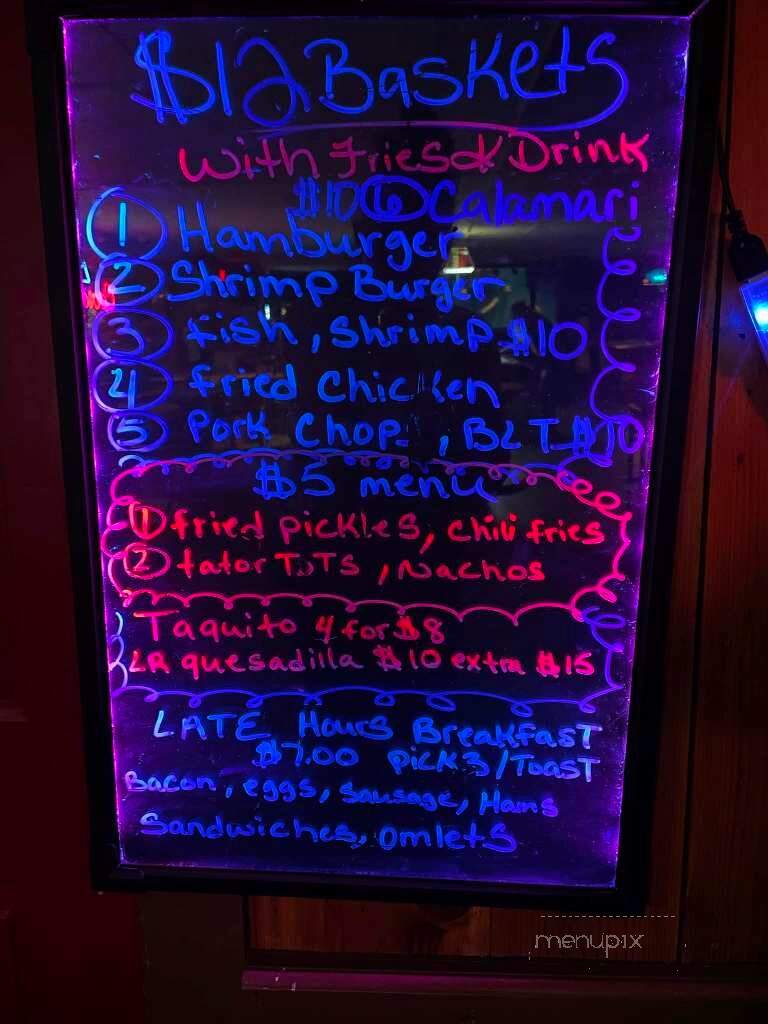 $12 Baskets
With Fries & Drink
$10 6 Calamari
1 Hamburger
2 Shrimp Burger
3 fish, Shrimp $10
4 fried Chicken
5 Pork Chop , BLT $10
$5 menu
1 fried pickles, chili fries
2 tator TOTS , Nachos
Taquito 4 for $8
LR quesadilla $10 extra $15
LATE Hours BreakfasT
$7.00 pick 3/Toast
Bacon, eggs, sausage, Hams
Sandwiches, omlets
menupix